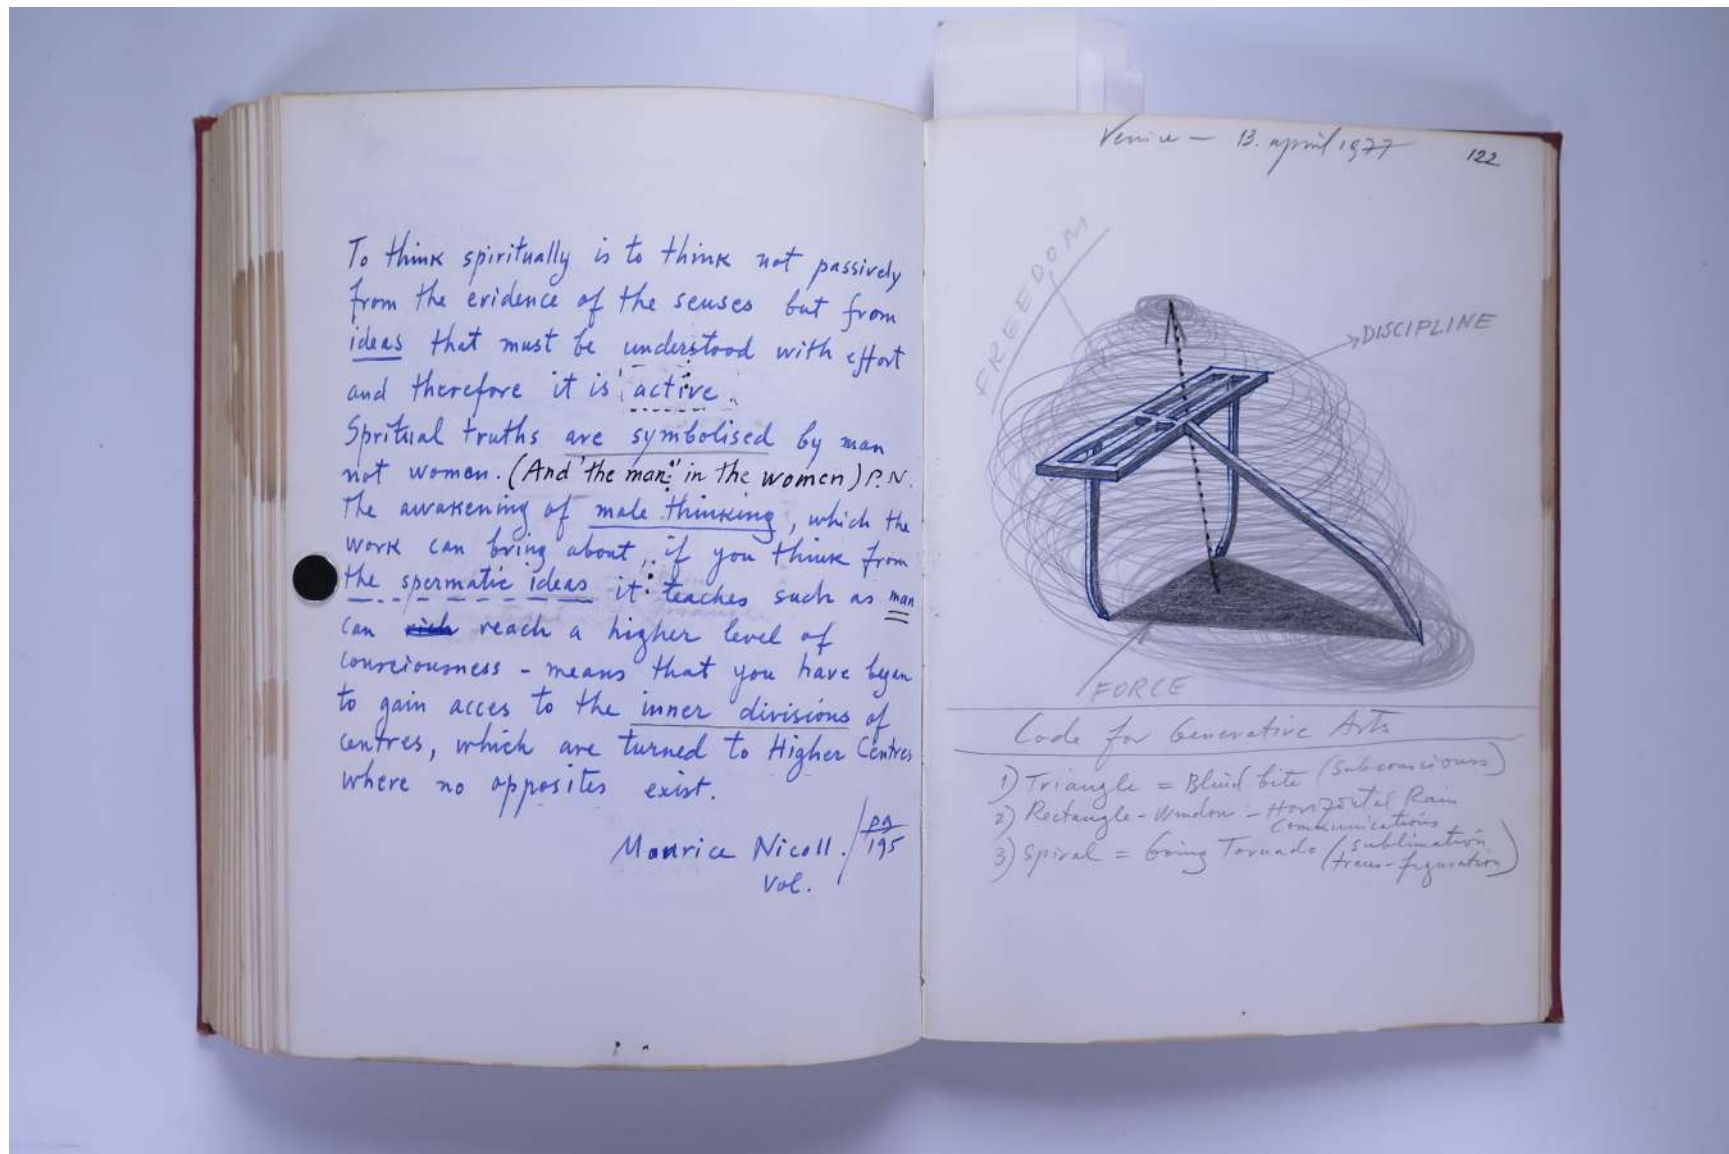 To think spiritually is to think not passively
from the evidence of the senses but from
ideas that must be understood with effort
and therefore it is active.
Spritual truths are symbolised by man
not women. (And "the man" in the women) P.N.
The awakening of male thinking, which the
work can bring about, if you think from
the spermatic ideas it teaches such as man
can rich reach a higher level of
consciousness - means that you have began
to gain acces to the inner divisions of
centres, which are turned to Higher Centres
where no opposites exist.
Maurice Nicoll. / pg
195
Vol.
Venice - 13. april 1977
122
FREEDOM
DISCIPLINE
FORCE
Code for Generative Arts
1) Triangle = Blind bite (Subconsciouss)
2) Rectangle - Window - Horizontal Rain
Communications
3) Spiral = Tornado (sublimation
trans-figuration)